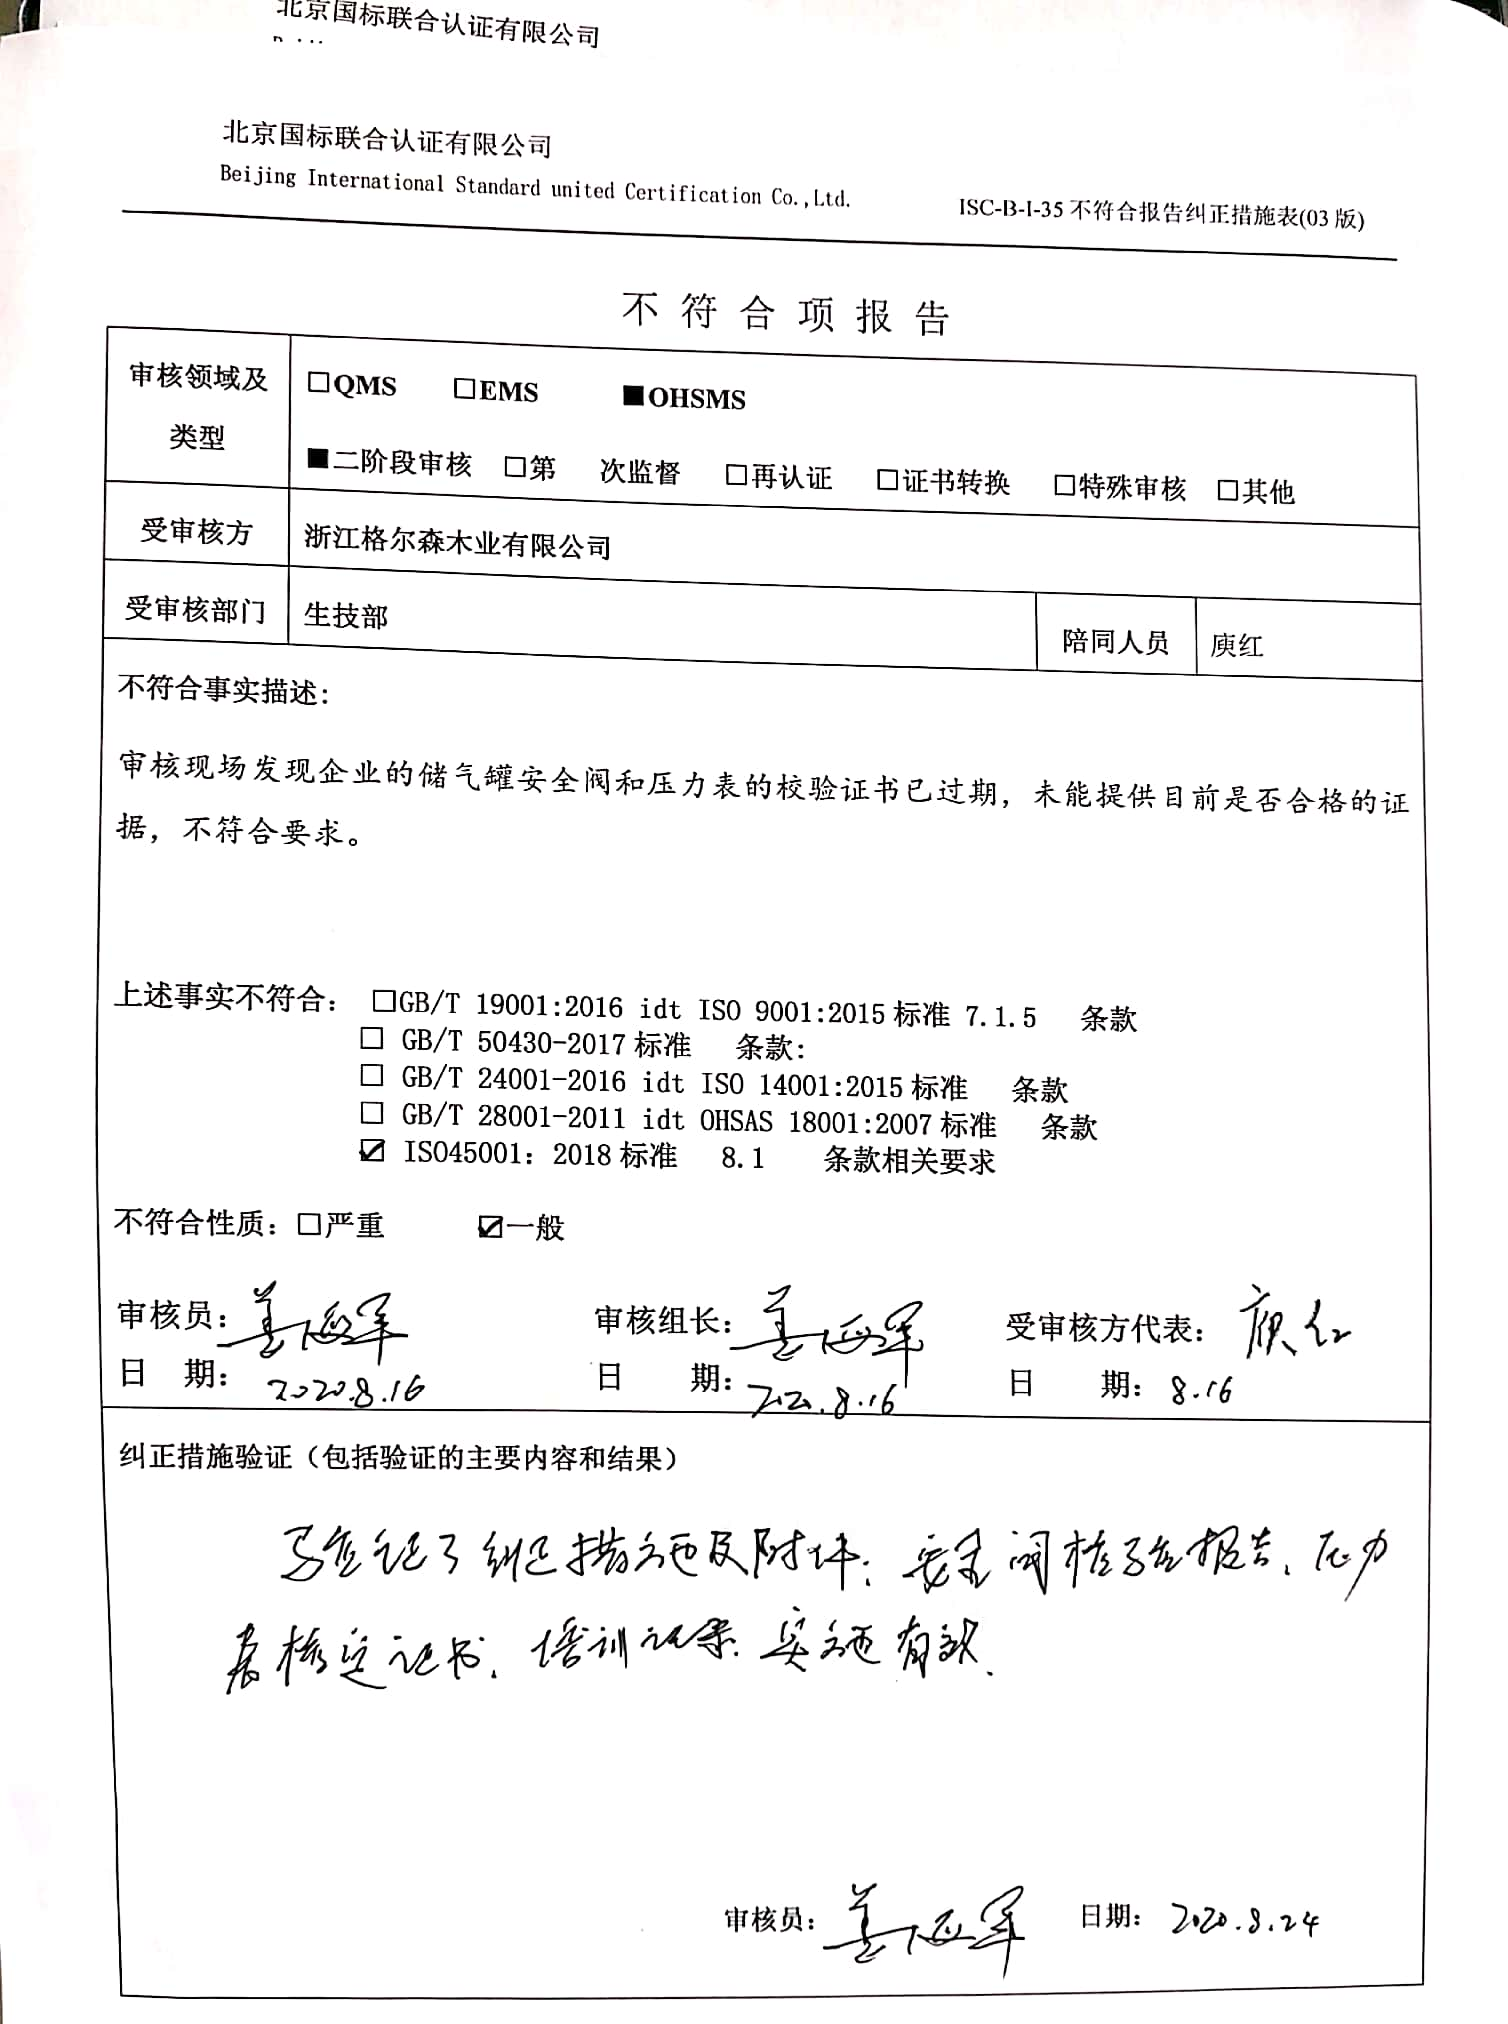 北京国标联合认证有限公司
北京国标联合认证有限公司
Beijing International Standard united Certification Co.,Ltd.
ISC-B-I-35 不符合报告纠正措施表(03 版)
不 符 合 项 报 告
审核领域及类型
□QMS □EMS ■OHSMS
■二阶段审核 □第 次监督 □再认证 □证书转换 □特殊审核 □其他
受审核方 浙江格尔森木业有限公司
受审核部门 生技部 陪同人员 庾红
不符合事实描述:
审核现场发现企业的储气罐安全阀和压力表的校验证书已过期，未能提供目前是否合格的证
据，不符合要求。
上述事实不符合： □GB/T 19001:2016 idt ISO 9001:2015 标准 7.1.5 条款
□ GB/T 50430-2017 标准 条款：
□ GB/T 24001-2016 idt ISO 14001:2015 标准 条款
□ GB/T 28001-2011 idt OHSAS 18001:2007 标准 条款
☑ ISO45001：2018 标准 8.1 条款相关要求
不符合性质：□严重 ☑一般
审核员： 审核组长： 受审核方代表：
日 期：2020.8.16 日 期：2020.8.16 日 期：8.16
纠正措施验证（包括验证的主要内容和结果）
验证了纠正措施及附件：安全阀校验报告、压力
表检定证书、培训记录.实施有效.
审核员： 日期：2020.8.24